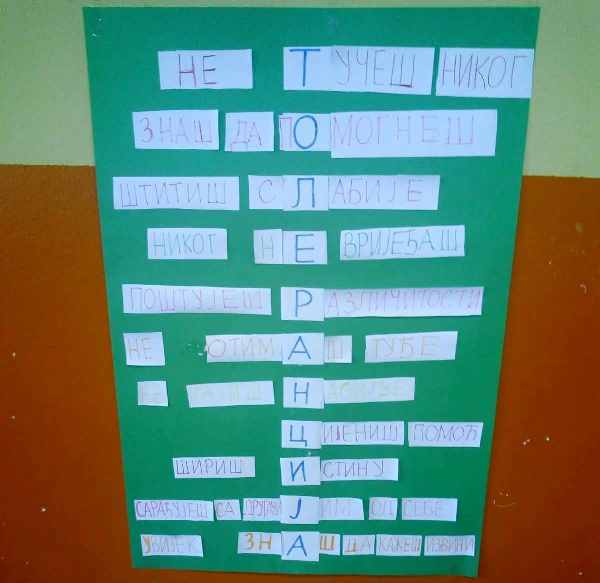 НЕ ТУЧЕШ НИКОГ
ЗНАШ ДА ПОМОГНЕШ
ШТИТИШ СЛАБИЈЕ
НИКОГ НЕ ВРИЈЕЂАШ
ПОШТУЈЕШ РАЗЛИЧИТОСТИ
НЕ ОТИМАШ ТУЂЕ
НЕ
ЦИЈЕНИШ ПОМОЋ
ШИРИШ ИСТИНУ
САРАЂУЈЕШ СА ОД СЕБЕ
УВИЈЕК ЗНАШ ДА КАЖЕШ ИЗВИНИ